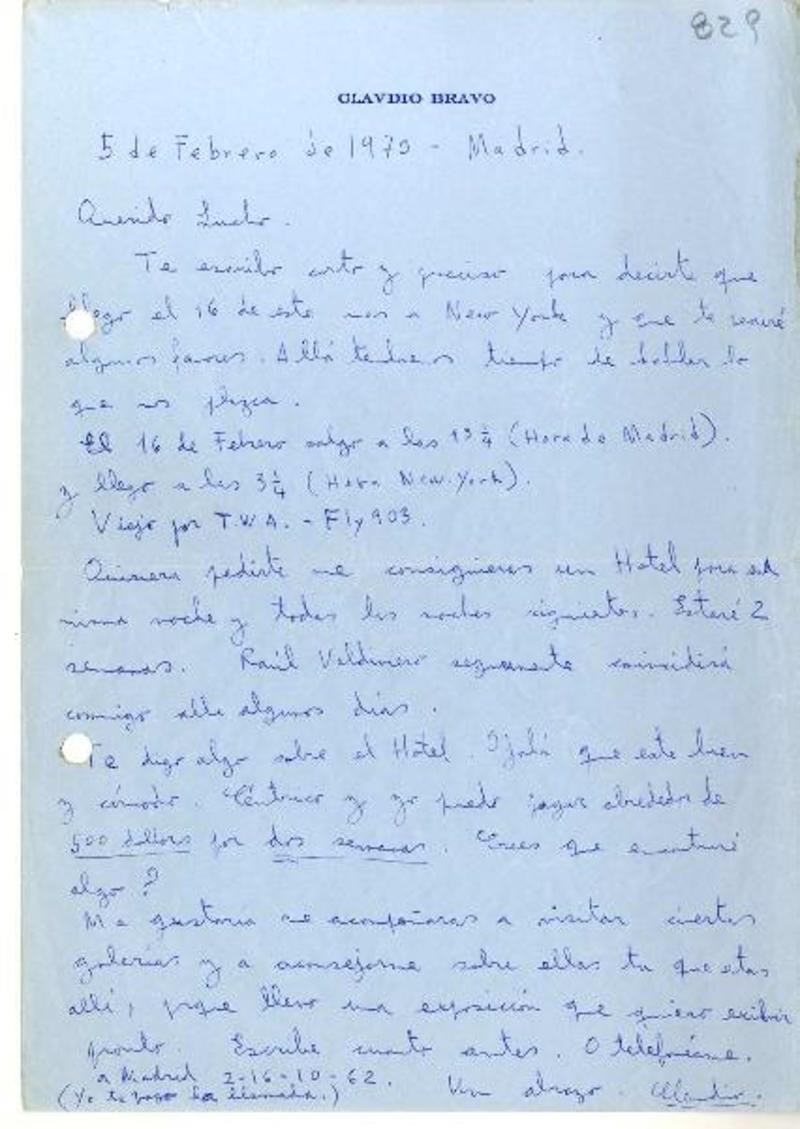 829
CLAVDIO BRAVO
5 de Febrero de 1970 - Madrid.
Querido Lucho.
Te escribo corto y preciso para decirte que
llego el 16 de este mes a New York y que te
algunos favores. Allá tendremos tiempo de hablar lo
que nos plazca.
El 16 de Febrero salgo a las 13 1/4 (Hora de Madrid).
y llego a las 3 1/4 (Hora New. York).
Viajo por T.W.A. - Fly 903.
Quisiera pedirte me consiguieras un Hotel para esa
misma noche y todas las noches siguientes. Estaré 2
semanas. Raúl Valdivieso seguramente coincidirá
conmigo alla algunos días.
Te digo algo sobre el Hotel. Ojalá que este bien
y cómodo. Céntrico y yo puedo pagar alrededor de
500 dollars por dos semanas. Crees que encontraré
algo?
Me gustaría me acompañaras a visitar ciertas
galerías y a aconsejarme sobre ellas tu que estas
allí, porque llevo una exposición que quiero exibir
pronto. Escribe cuanto antes. O telefonéame.
a Madrid 2-16-10-62.
(Yo te pago la llamada.) Un abrazo. Claudio.